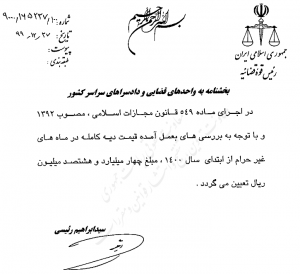 بسم الله الرحمن الرحیم
جمهوری اسلامی ایران
رئیس قوهٔ قضائیه
شماره: ۹۰۰۰/۱۶۵۲۳۷/۱۰۰
تاریخ: ۹۹/۱۲/۲۷
پیوست:
طبقه‌بندی:
بخشنامه به واحدهای قضایی و دادسراهای سراسر کشور
در اجرای ماده ۵۴۹ قانون مجازات اسلامی ، مصوب ۱۳۹۲
و با توجه به بررسی های بعمل آمده قیمت دیه کامله در ماه های
غیر حرام از ابتدای سال ۱۴۰۰ ، مبلغ چهار میلیارد و هشتصد میلیون
ریال تعیین می گردد .
سیدابراهیم رئیسی